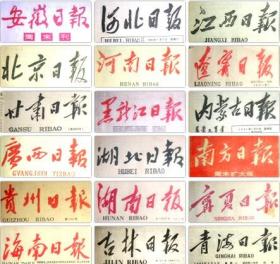 安徽日报
周末刊
河北日報
HEBEI RIBAO
江西日報
JIANGXI RIBAO
北京日报
河南日報
HENAN RIBAO
遼寧日報
LIAONING RIBAO
甘肃日報
GANSU RIBAO
黑龙江日報
内蒙古日報
廣西日報
GVANGJSIH YIZBAU
湖北日報
HUBEI RIBAO
南方日報
周末扩大版
贵州日報
GUIZHOU RIBAO
湖南日報
HUNAN RIBAO
寧夏日報
NINGXIA RIBAO
海南日报
吉林日報
JILIN RIBAO
青海日報
QINGHAI RIBAO